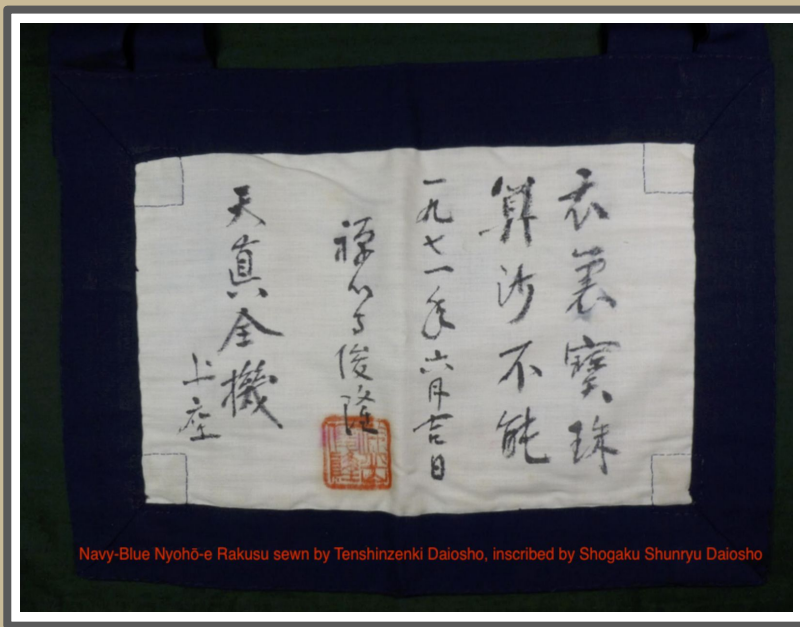 衣裏寳珠
算沙不能
一九七一年六月吉日
禅心寺俊隆
天真全機
上座
Navy-Blue Nyohō-e Rakusu sewn by Tenshinzenki Daiosho, inscribed by Shogaku Shunryu Daiosho